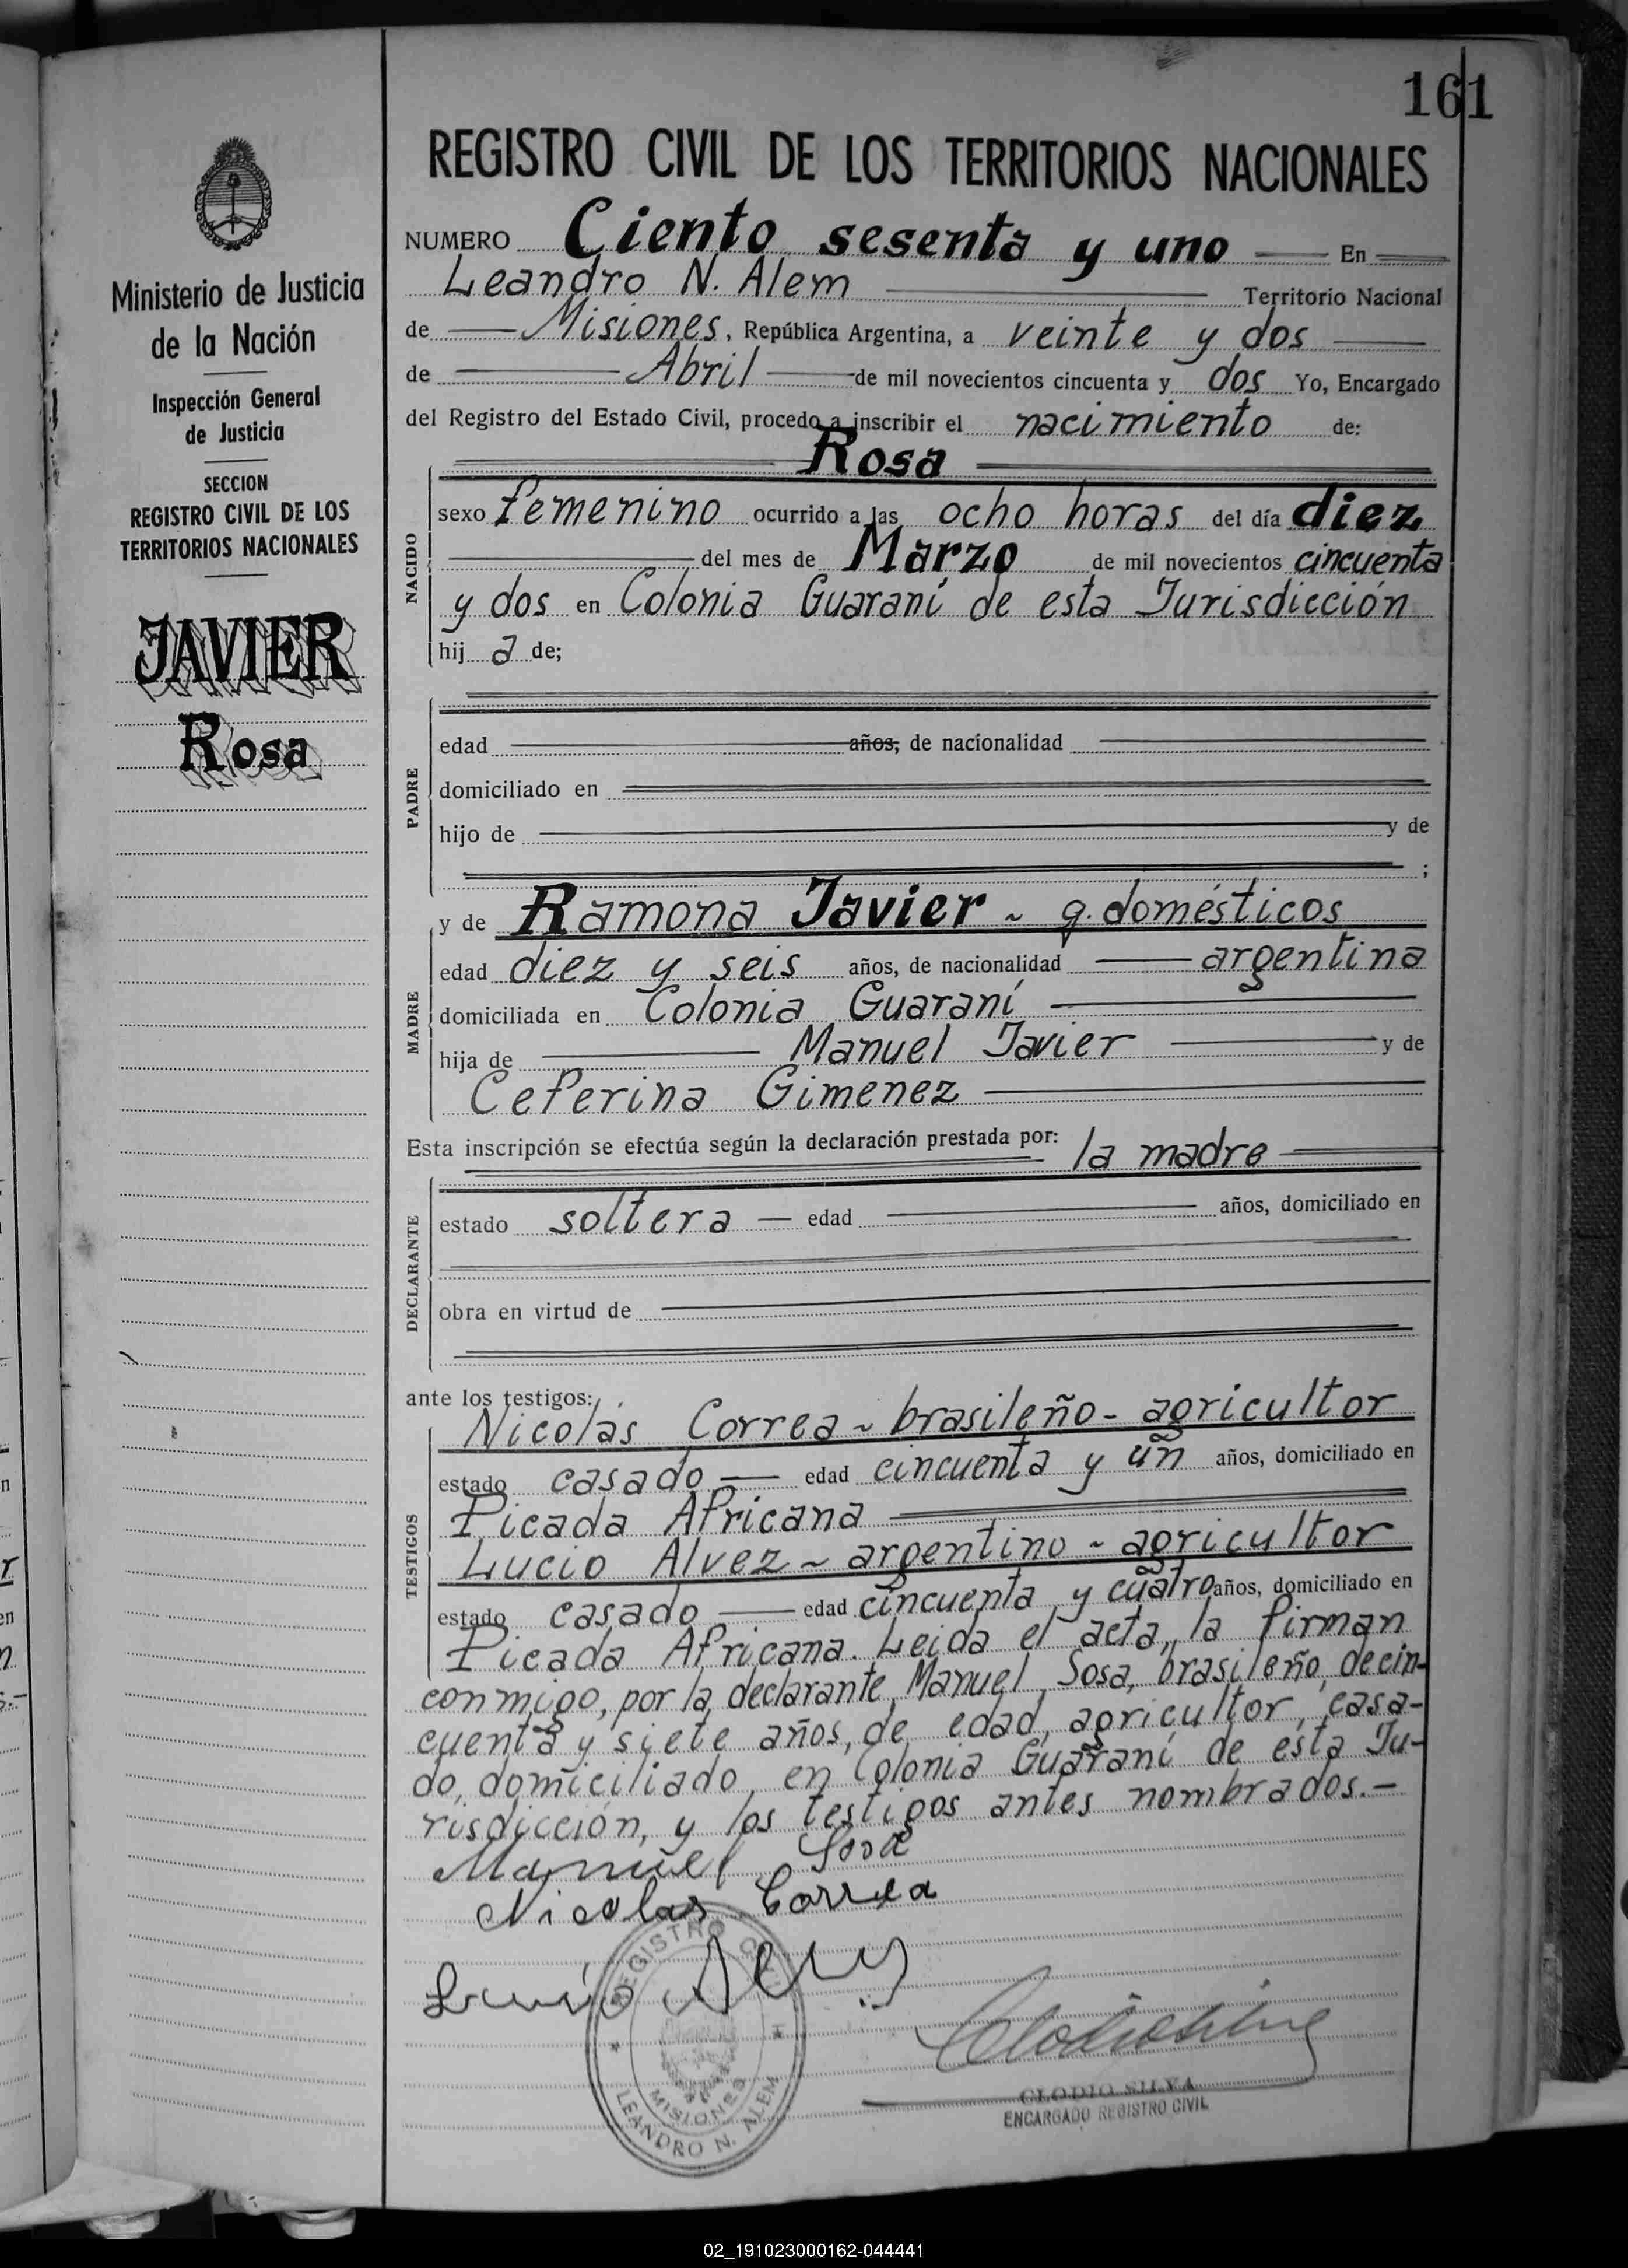 161
REGISTRO CIVIL DE LOS TERRITORIOS NACIONALES
Ministerio de Justicia
de la Nación
Inspección General
de Justicia
SECCION
REGISTRO CIVIL DE LOS
TERRITORIOS NACIONALES
JAVIER
Rosa
NUMERO Ciento sesenta y uno En
Leandro N. Alem Territorio Nacional
de Misiones, República Argentina, a veinte y dos
de Abril de mil novecientos cincuenta y dos Yo, Encargado
del Registro del Estado Civil, procedo a inscribir el nacimiento de:
Rosa
NACIDO
sexo femenino ocurrido a las ocho horas del día diez
del mes de Marzo de mil novecientos cincuenta
y dos en Colonia Guaraní de esta Jurisdicción
hija de;
PADRE
edad años, de nacionalidad
domiciliado en
hijo de y de
;
MADRE
y de Ramona Javier ~ q. domésticos
edad diez y seis años, de nacionalidad argentina
domiciliada en Colonia Guaraní
hija de Manuel Javier y de
Ceferina Gimenez
Esta inscripción se efectúa según la declaración prestada por: la madre
DECLARANTE
estado soltera — edad años, domiciliado en
obra en virtud de
ante los testigos:
TESTIGOS
Nicolás Correa ~ brasileño - agricultor
estado casado — edad cincuenta y un años, domiciliado en
Picada Africana
Lucio Alvez ~ argentino ~ agricultor
estado casado — edad cincuenta y cuatro años, domiciliado en
Picada Africana. Leida el acta, la firman
conmigo, por la declarante, Manuel Sosa, brasileño, de cin-
cuenta y siete años, de edad, agricultor, casa-
do, domiciliado en Colonia Guaraní de esta Ju-
risdicción, y los testigos antes nombrados.-
Manuel Sosa
Nicolas Correa
REGISTRO CIVIL
MISIONES
LEANDRO N. ALEM
CLODIO SILVA
ENCARGADO REGISTRO CIVIL
02_191023000162-044441